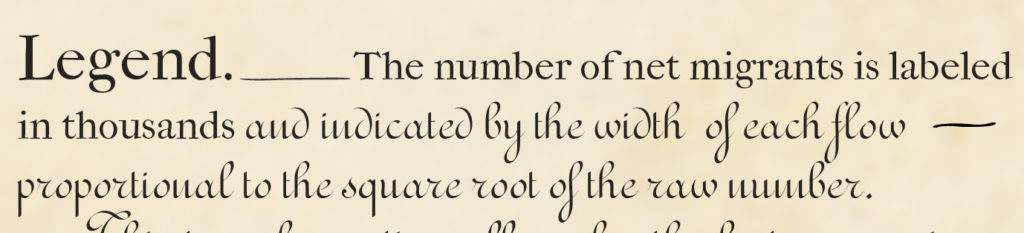 Legend. The number of net migrants is labeled
in thousands and indicated by the width of each flow —
proportional to the square root of the raw number.